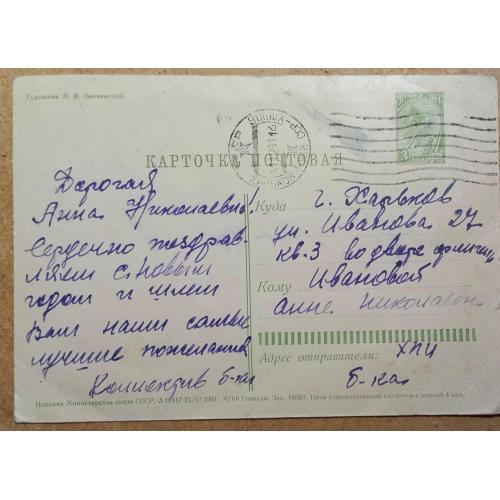 Художник И. В. Знаменский.
КАРТОЧКА ПОЧТОВАЯ
3
Дорогая
Анна Николаевна.
Сердечно поздрав-
ляем с Новым
годом и шлем
Вам наши самые
лучшие пожелания
Коллектив б-ки
Куда г. Харьков
ул. Иванова 27
кв. 3 во дворе
Кому Ивановой
Анне Николаевне
Адрес отправителя: ХПИ
б-ка
Издание Министерства связи СССР. 25/XI 1961. МПФ Гознака. Зак. Цена художественной карточки с маркой 4 коп.